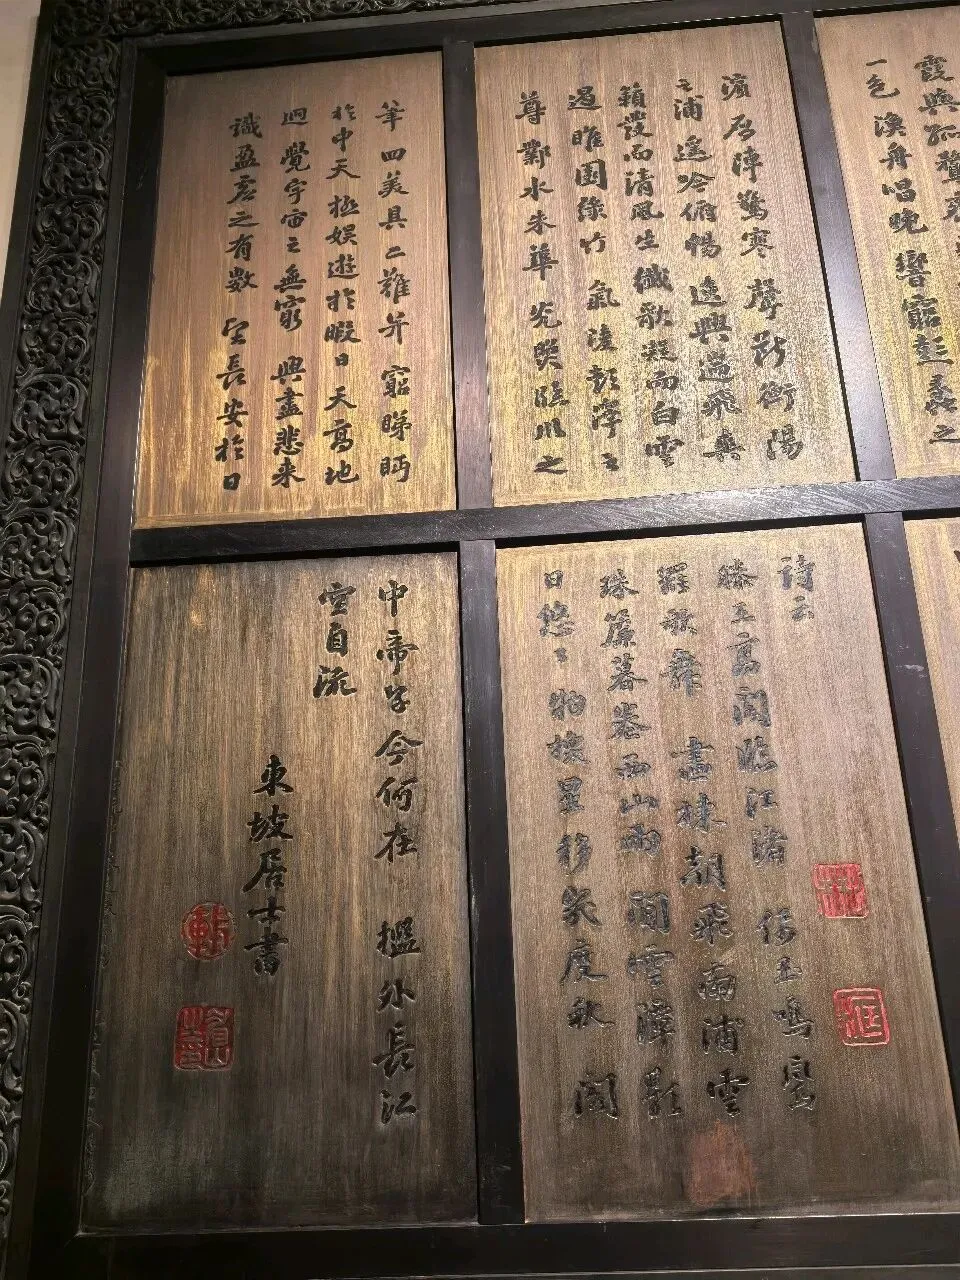 霞與孤鶩
一色 漁舟唱晚 響窮彭蠡之
濵 鴈陣驚寒 聲斷衡陽
之浦 遥吟俯暢 逸興遄飛 爽
籟發而清風生 纖歌凝而白雲
遏 睢園緑竹 氣凌彭澤之
尊 鄴水朱華 光照臨川之
筆 四美具 二難并 窮睇眄
於中天 極娱遊於暇日 天高地
迥 覺宇宙之無窮 興盡悲来
識盈虚之有數 望長安於日
詩云
滕王高閣臨江渚 佩玉鳴鸞
罷歌舞 畫棟朝飛南浦雲
珠簾暮卷西山雨 閒雲潭影
日悠〻 物換星移幾度秋 閣
中帝子今何在 檻外長江
空自流
東坡居士書
軾